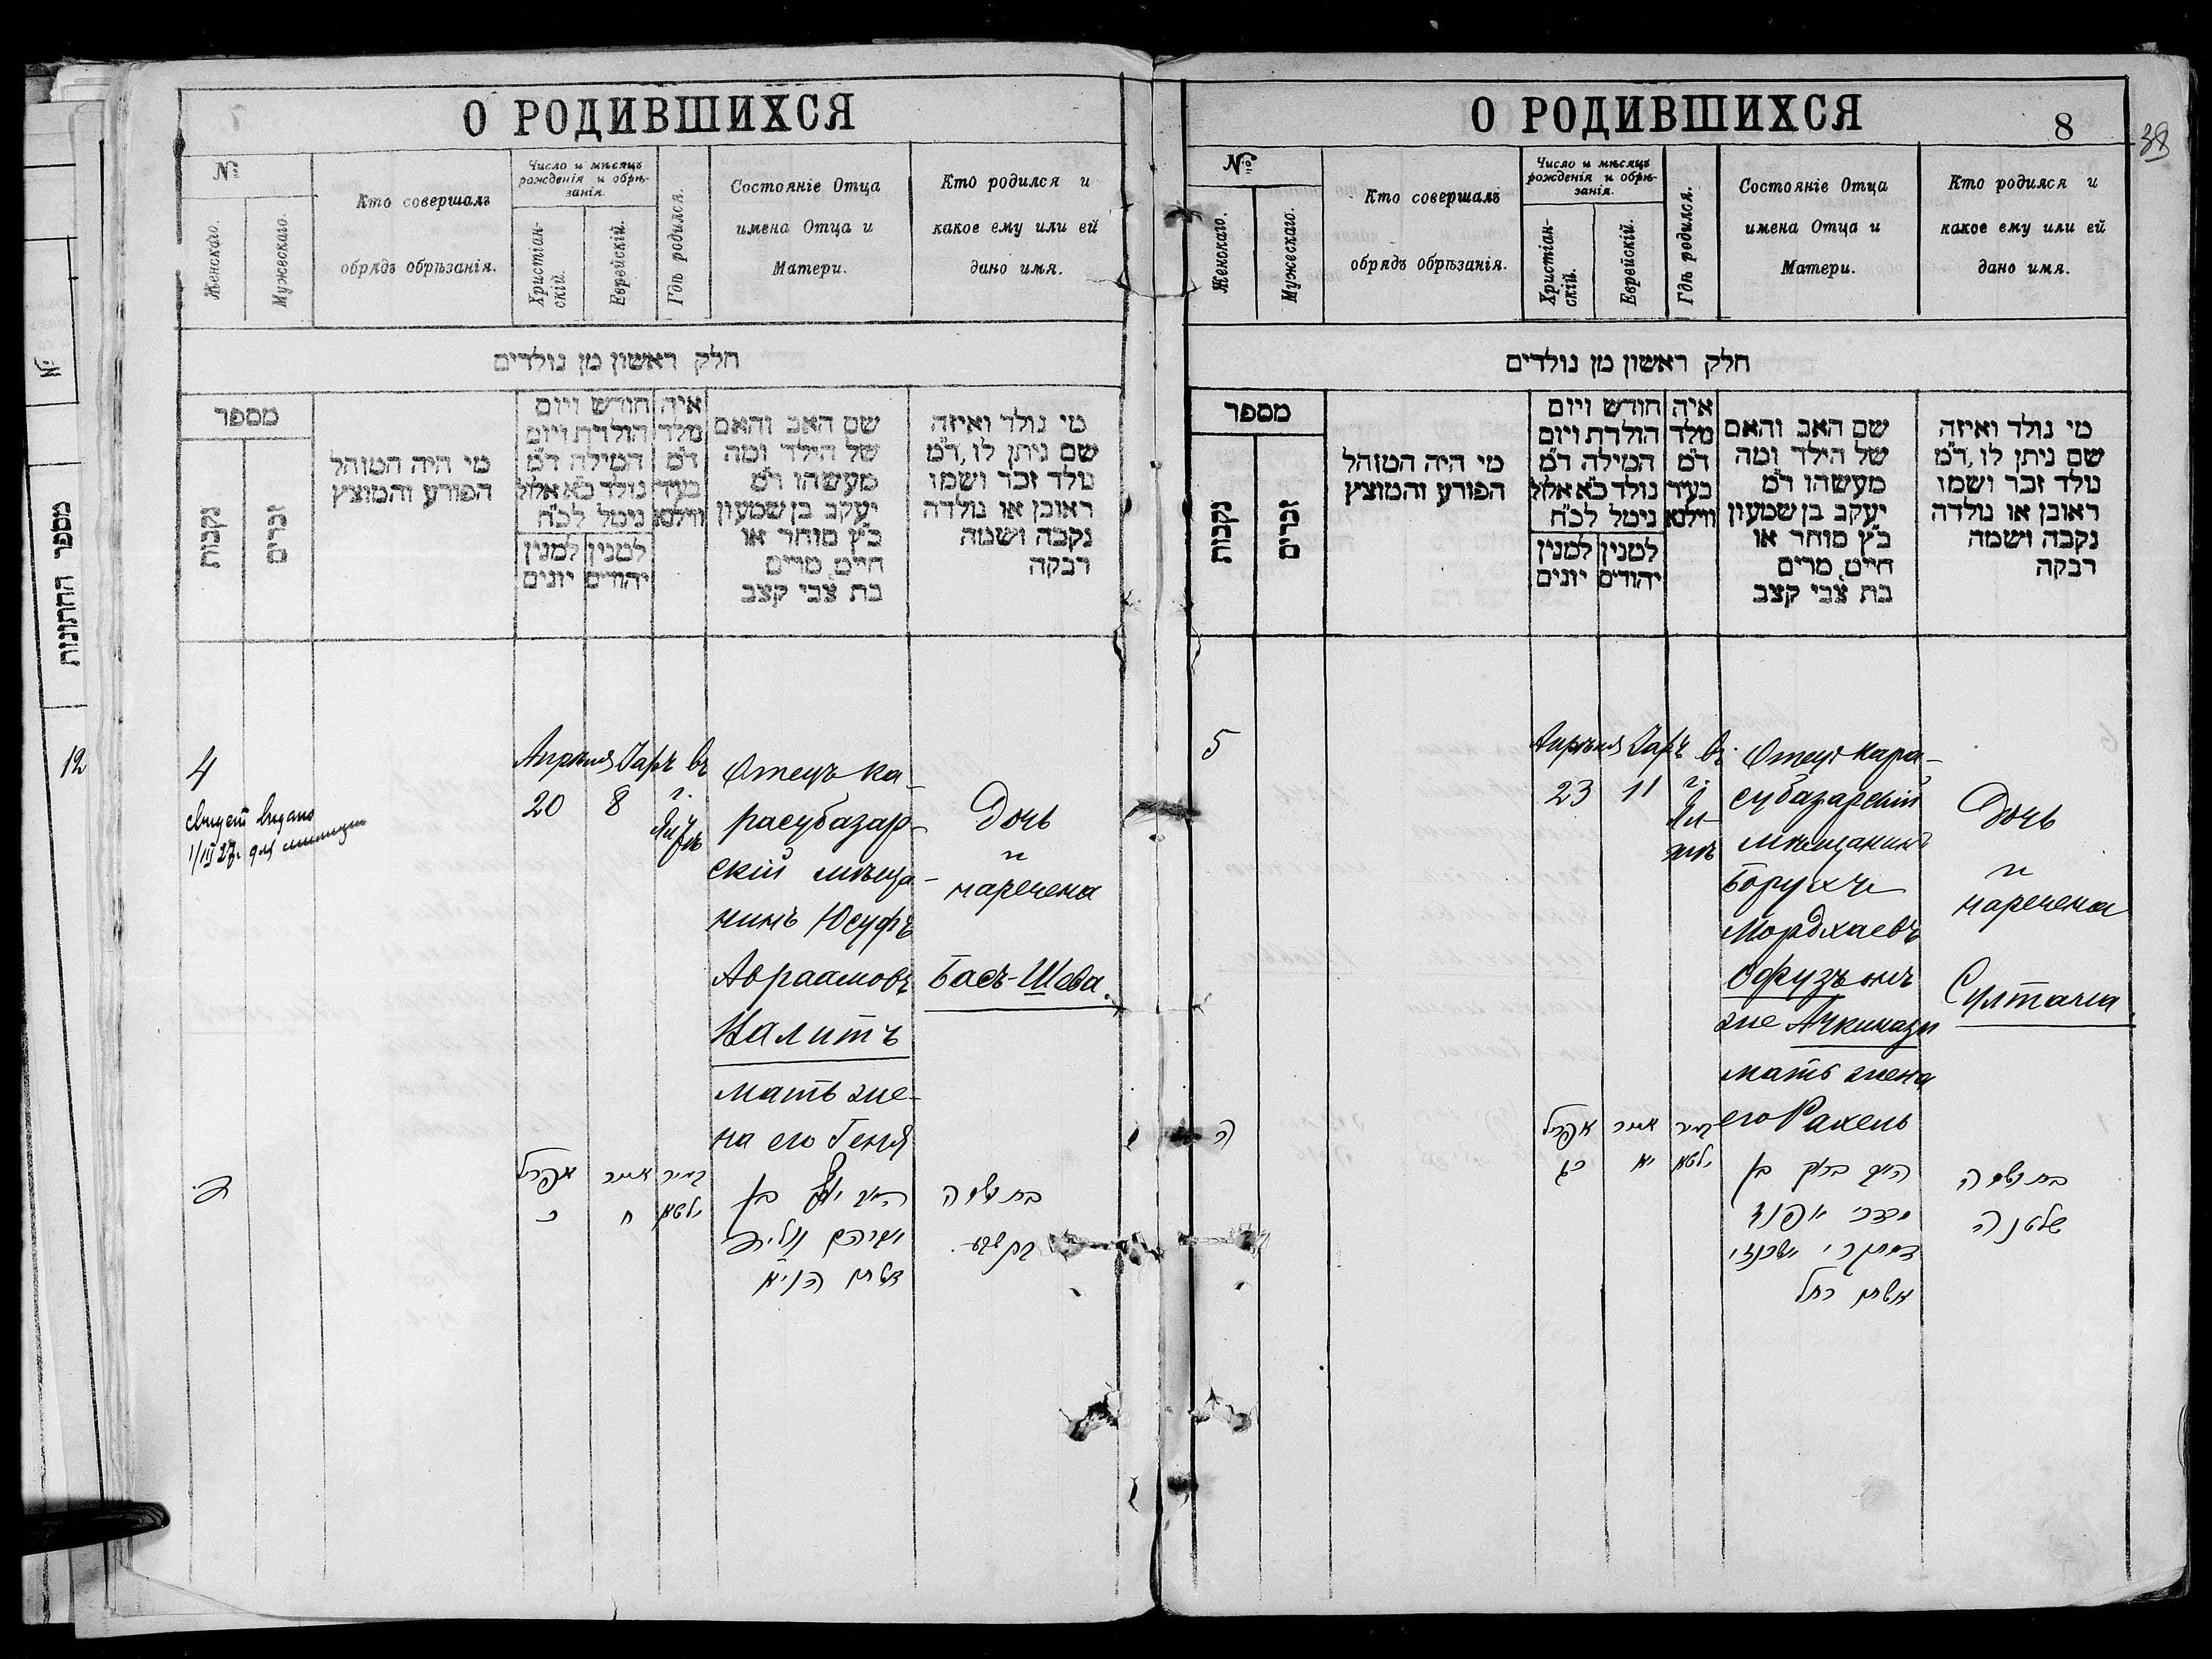 О РОДИВШИХСЯ
№
Женскаго.
Мужескаго.
Кто совершалъ
обрядъ обрѣзанія.
Число и мѣсяцъ
рожденія и обрѣ-
занія.
Христіан-
скій.
Еврейскій.
Гдѣ родился.
Состояніе Отца
имена Отца и
Матери.
Кто родился и
какое ему или ей
дано имя.
חלק ראשון מן נולדים
מספר
נקבות
זכרים
מי היה המוהל
הפורע והמוצץ
איה חודש ויום
מלד הולדת ויום
ד״מ המילה ד״מ
בעיר נולד כ״א אלול
ווילנא נימל לכ״ח
למנין למנין
יהודים יונים
שם האב והאם
של הילד ומה
מעשהו ד״מ
יעקב בן שמעון
כ״ץ סוחר או
חייט מרים
בת צבי קצב
מי נולד ואיזה
שם ניתן לו, ד״מ
נולד זכר ושמו
ראובן או נולדה
נקבה ושמה
רבקה
4
Апрѣля
20
Іаръ
8
въ
г.
Отецъ ка-
расубазар-
скій мѣща-
нинъ Юсуфъ
Авраамовъ
Налитъ
мать же-
на его Геня
Дочь
и
наречена
Басъ-Шева.
אפריל
כ
אייר
ח
בעיר
בת ושמה
О РОДИВШИХСЯ
8
38
№
Женскаго.
Мужескаго.
Кто совершалъ
обрядъ обрѣзанія.
Число и мѣсяцъ
рожденія и обрѣ-
занія.
Христіан-
скій.
Еврейскій.
Гдѣ родился.
Состояніе Отца
имена Отца и
Матери.
Кто родился и
какое ему или ей
дано имя.
חלק ראשון מן נולדים
מספר
נקבות
זכרים
מי היה המוהל
הפורע והמוצץ
איה חודש ויום
מלד הולדת ויום
ד״מ המילה ד״מ
בעיר נולד כ״א אלול
ווילנא נימל לכ״ח
למנין למנין
יהודים יונים
שם האב והאם
של הילד ומה
מעשהו ד״מ
יעקב בן שמעון
כ״ץ סוחר או
חייט מרים
בת צבי קצב
מי נולד ואיזה
שם ניתן לו, ד״מ
נולד זכר ושמו
ראובן או נולדה
נקבה ושמה
רבקה
5
Апрѣля
23
Іаръ
11
въ
г.
Отецъ кара-
субазарскій
мѣщанинъ
Борухъ
Мордхаевъ
Офузъ онъ
же Ачкинази
мать жена
его Рахель
Дочь
и
наречена
Султана
ה
אפריל
כג
אייר
יא
בעיר
ילטא
אשתו רחל
בת ושמה
שלטנה
№
מספר החתונות
12